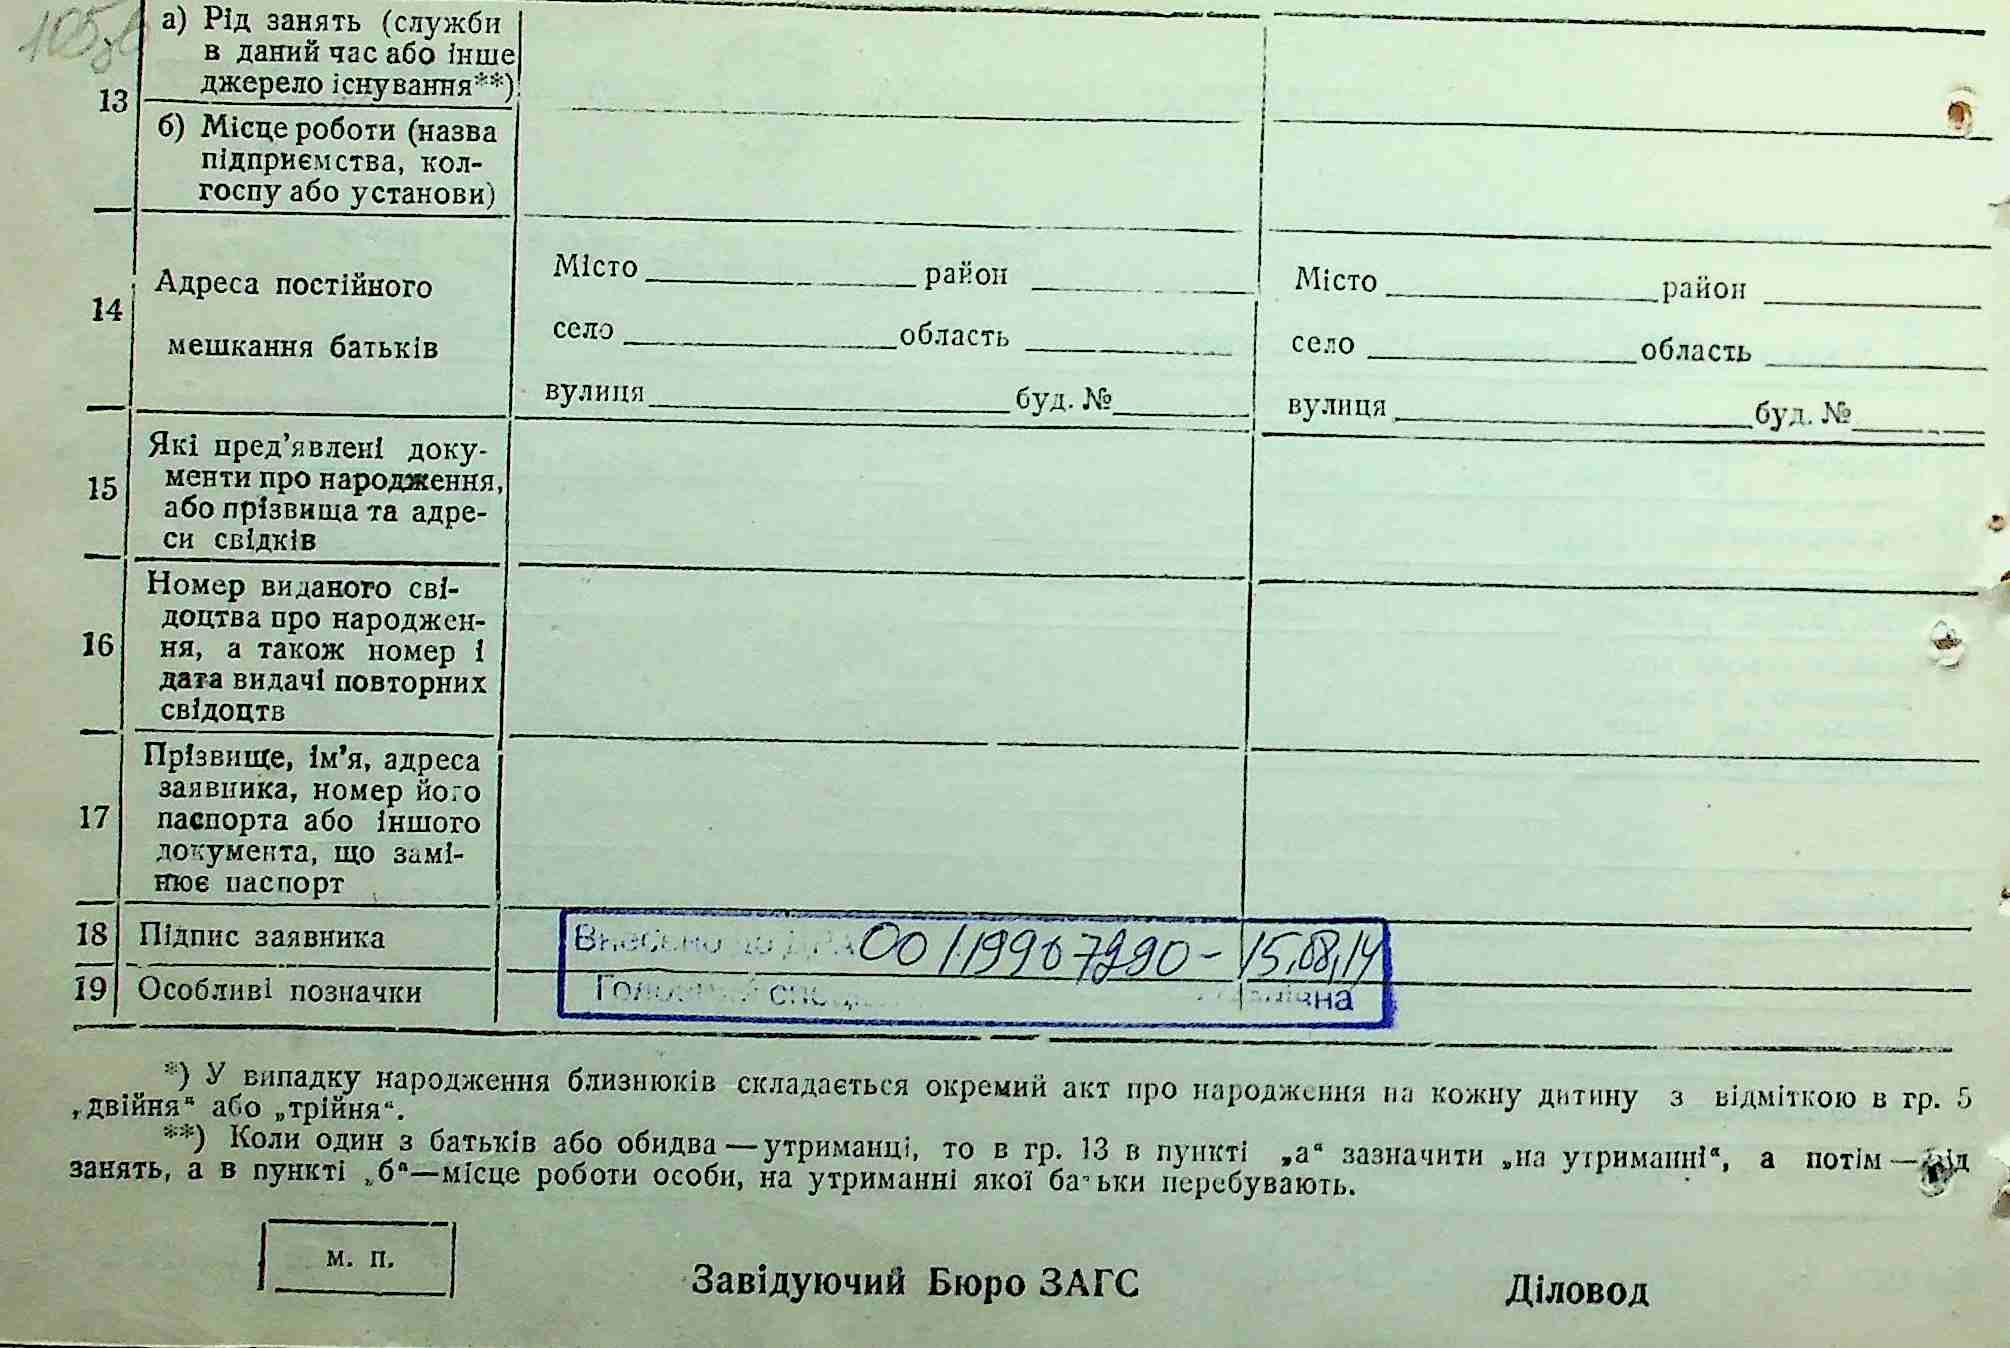 105зв
13
а) Рід занять (служби
в даний час або інше
джерело існування**)
б) Місце роботи (назва
підприємства, кол-
госпу або установи)
14
Адреса постійного
мешкання батьків
Місто район
село область
вулиця буд. №
Місто район
село область
вулиця буд. №
15
Які пред’явлені доку-
менти про народження,
або прізвища та адре-
си свідків
16
Номер виданого сві-
доцтва про народжен-
ня, а також номер і
дата видачі повторних
свідоцтв
17
Прізвище, ім’я, адреса
заявника, номер його
паспорта або іншого
документа, що замі-
нює паспорт
18 Підпис заявника
Внесено до ДРА 00119967290 - 15,08,14
19 Особливі позначки
*) У випадку народження близнюків складається окремий акт про народження на кожну дитину з відміткою в гр. 5
„двійня“ або „трійня“.
**) Коли один з батьків або обидва—утриманці, то в гр. 13 в пункті „а“ зазначити „на утриманні“, а потім—рід
занять, а в пункті „б“—місце роботи особи, на утриманні якої батьки перебувають.
м. п.
Завідуючий Бюро ЗАГС Діловод